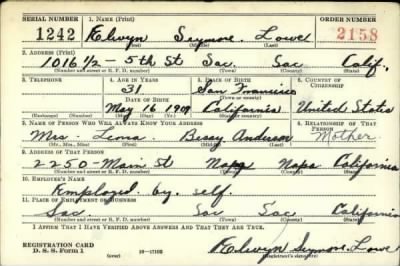 SERIAL NUMBER 1. NAME (Print) ORDER NUMBER
1242 Kelwyn Seymore Lowe 2158
(First) (Middle) (Last)
2. ADDRESS (Print)
1016 1/2 - 5th St Sac. Sac Calif.
(Number and street or R. F. D. number) (Town) (County) (State)
3. TELEPHONE 4. AGE IN YEARS 5. PLACE OF BIRTH 6. COUNTRY OF CITIZENSHIP
31 San Francisco
DATE OF BIRTH (Town or county)
May 16 1909 California United States
(Exchange) (Number) (Mo.) (Day) (Yr.) (State or country)
7. NAME OF PERSON WHO WILL ALWAYS KNOW YOUR ADDRESS 8. RELATIONSHIP OF THAT PERSON
Mrs. Anderson Mother
(Mr., Mrs., Miss) (First) (Middle) (Last)
9. ADDRESS OF THAT PERSON
2250 - Main St Napa Napa California
(Number and street or R. F. D. number) (Town) (County) (State)
10. EMPLOYER'S NAME
Employed by self.
11. PLACE OF EMPLOYMENT OR BUSINESS
Sac. Sac Sac California
(Number and street or R. F. D. number) (Town) (County) (State)
I AFFIRM THAT I HAVE VERIFIED ABOVE ANSWERS AND THAT THEY ARE TRUE.
REGISTRATION CARD
D. S. S. Form 1 (over) Kelwyn Seymore Lowe
(Registrant's signature)